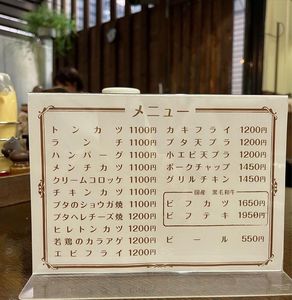 メニュー
トンカツ 1100円
ランチ 1100円
ハンバーグ 1100円
メンチカツ 1100円
クリームコロッケ 1100円
チキンカツ 1100円
ブタのショウガ焼 1100円
ブタヘレチーズ焼 1200円
ヒレトンカツ 1200円
若鶏のカラアゲ 1200円
エビフライ 1200円
カキフライ 1200円
ブタ天プラ 1200円
小エビ天プラ 1200円
ポークチャップ 1450円
グリルチキン 1450円
国産 黒毛和牛
ビフカツ 1650円
ビフテキ 1950円
ビール 550円